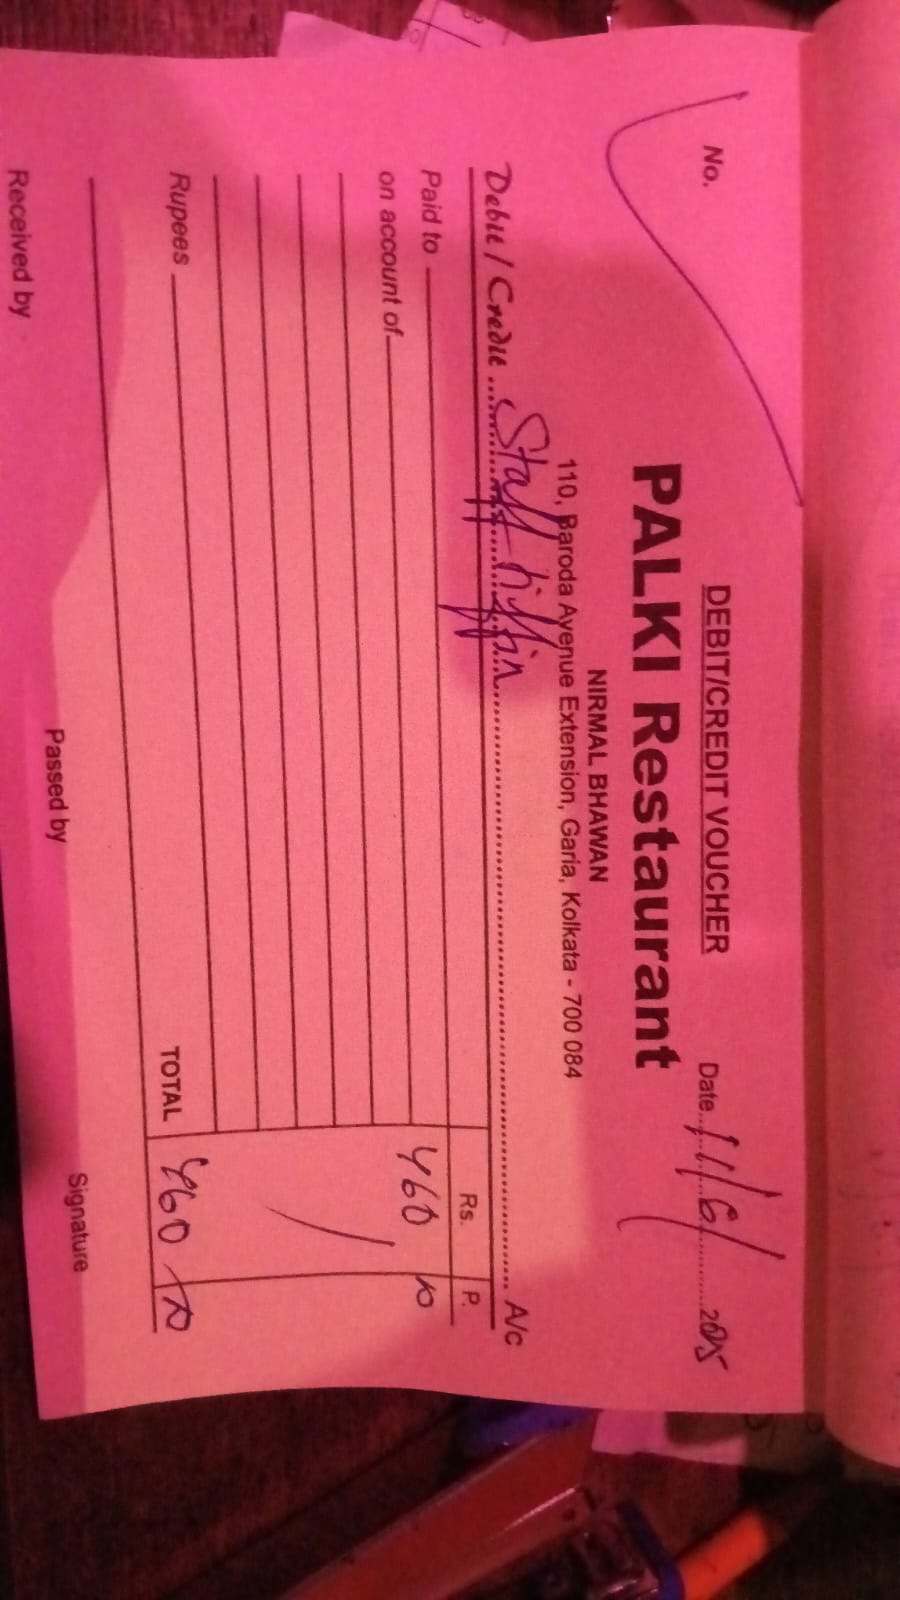 DEBIT/CREDIT VOUCHER
No. Date 11/6/2025
PALKI Restaurant
NIRMAL BHAWAN
110, Baroda Avenue Extension, Garia, Kolkata - 700 084
Debit / Credit Staff tiffin A/c
Rs. P.
Paid to 460
on account of
Rupees TOTAL 460
Received by Passed by Signature